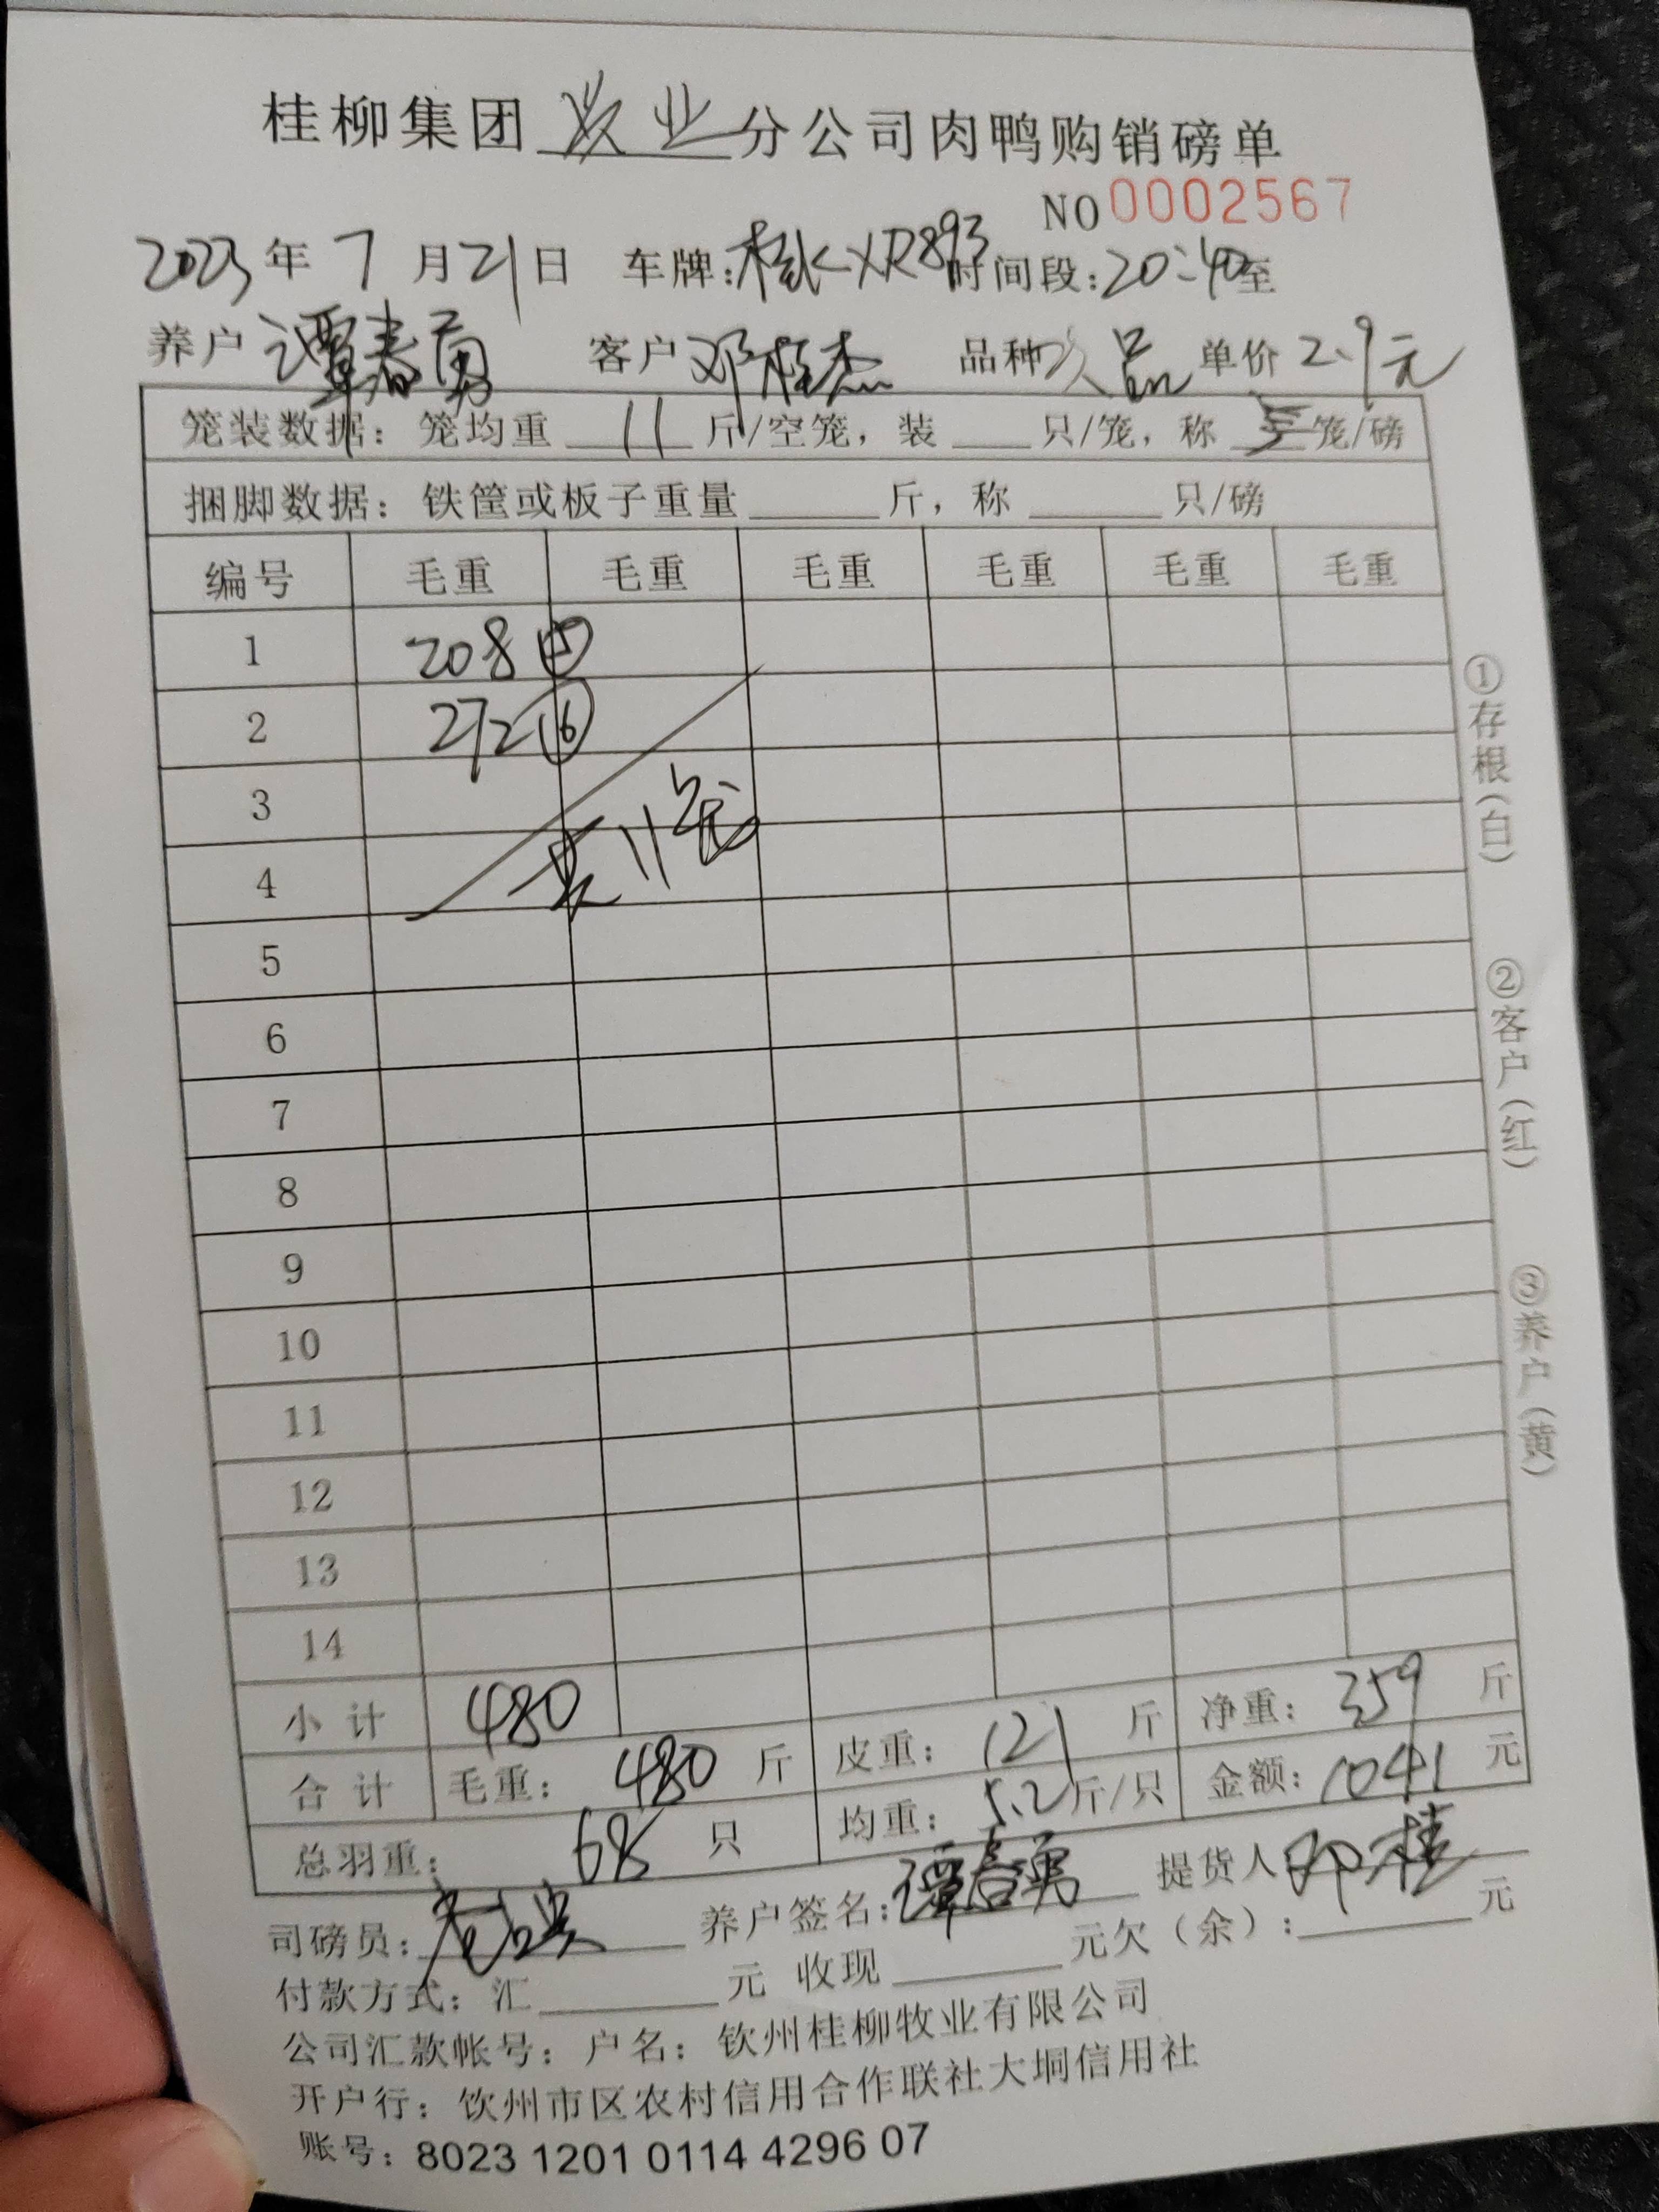 桂柳集团 牧业 分公司肉鸭购销磅单
NO 0002567
2023 年 7 月 21 日 车牌: 桂KXR893 时间段: 20:40 至
养户 谭春勇 客户 邓桂杰 品种 次品 单价 2.9元
笼装数据: 笼均重 11 斤/空笼, 装 只/笼, 称 笼/磅
捆脚数据: 铁筐或板子重量 斤, 称 只/磅
编号 毛重 毛重 毛重 毛重 毛重 毛重
1 208 ⑤
2 272 ⑥
3
4 共11笼
5
6
7
8
9
10
11
12
13
14
小计 480
合计 毛重: 480 斤 皮重: 121 斤 净重: 359 斤
总羽重: 68 只 均重: 5.2 斤/只 金额: 1041 元
司磅员: 养户签名: 谭春勇 提货人 邓桂
付款方式: 汇 元 收现 元欠(余): 元
公司汇款帐号: 户名: 钦州桂柳牧业有限公司
开户行: 钦州市区农村信用合作联社大垌信用社
账号: 8023 1201 0114 4296 07
①存根(白)
②客户(红)
③养户(黄)